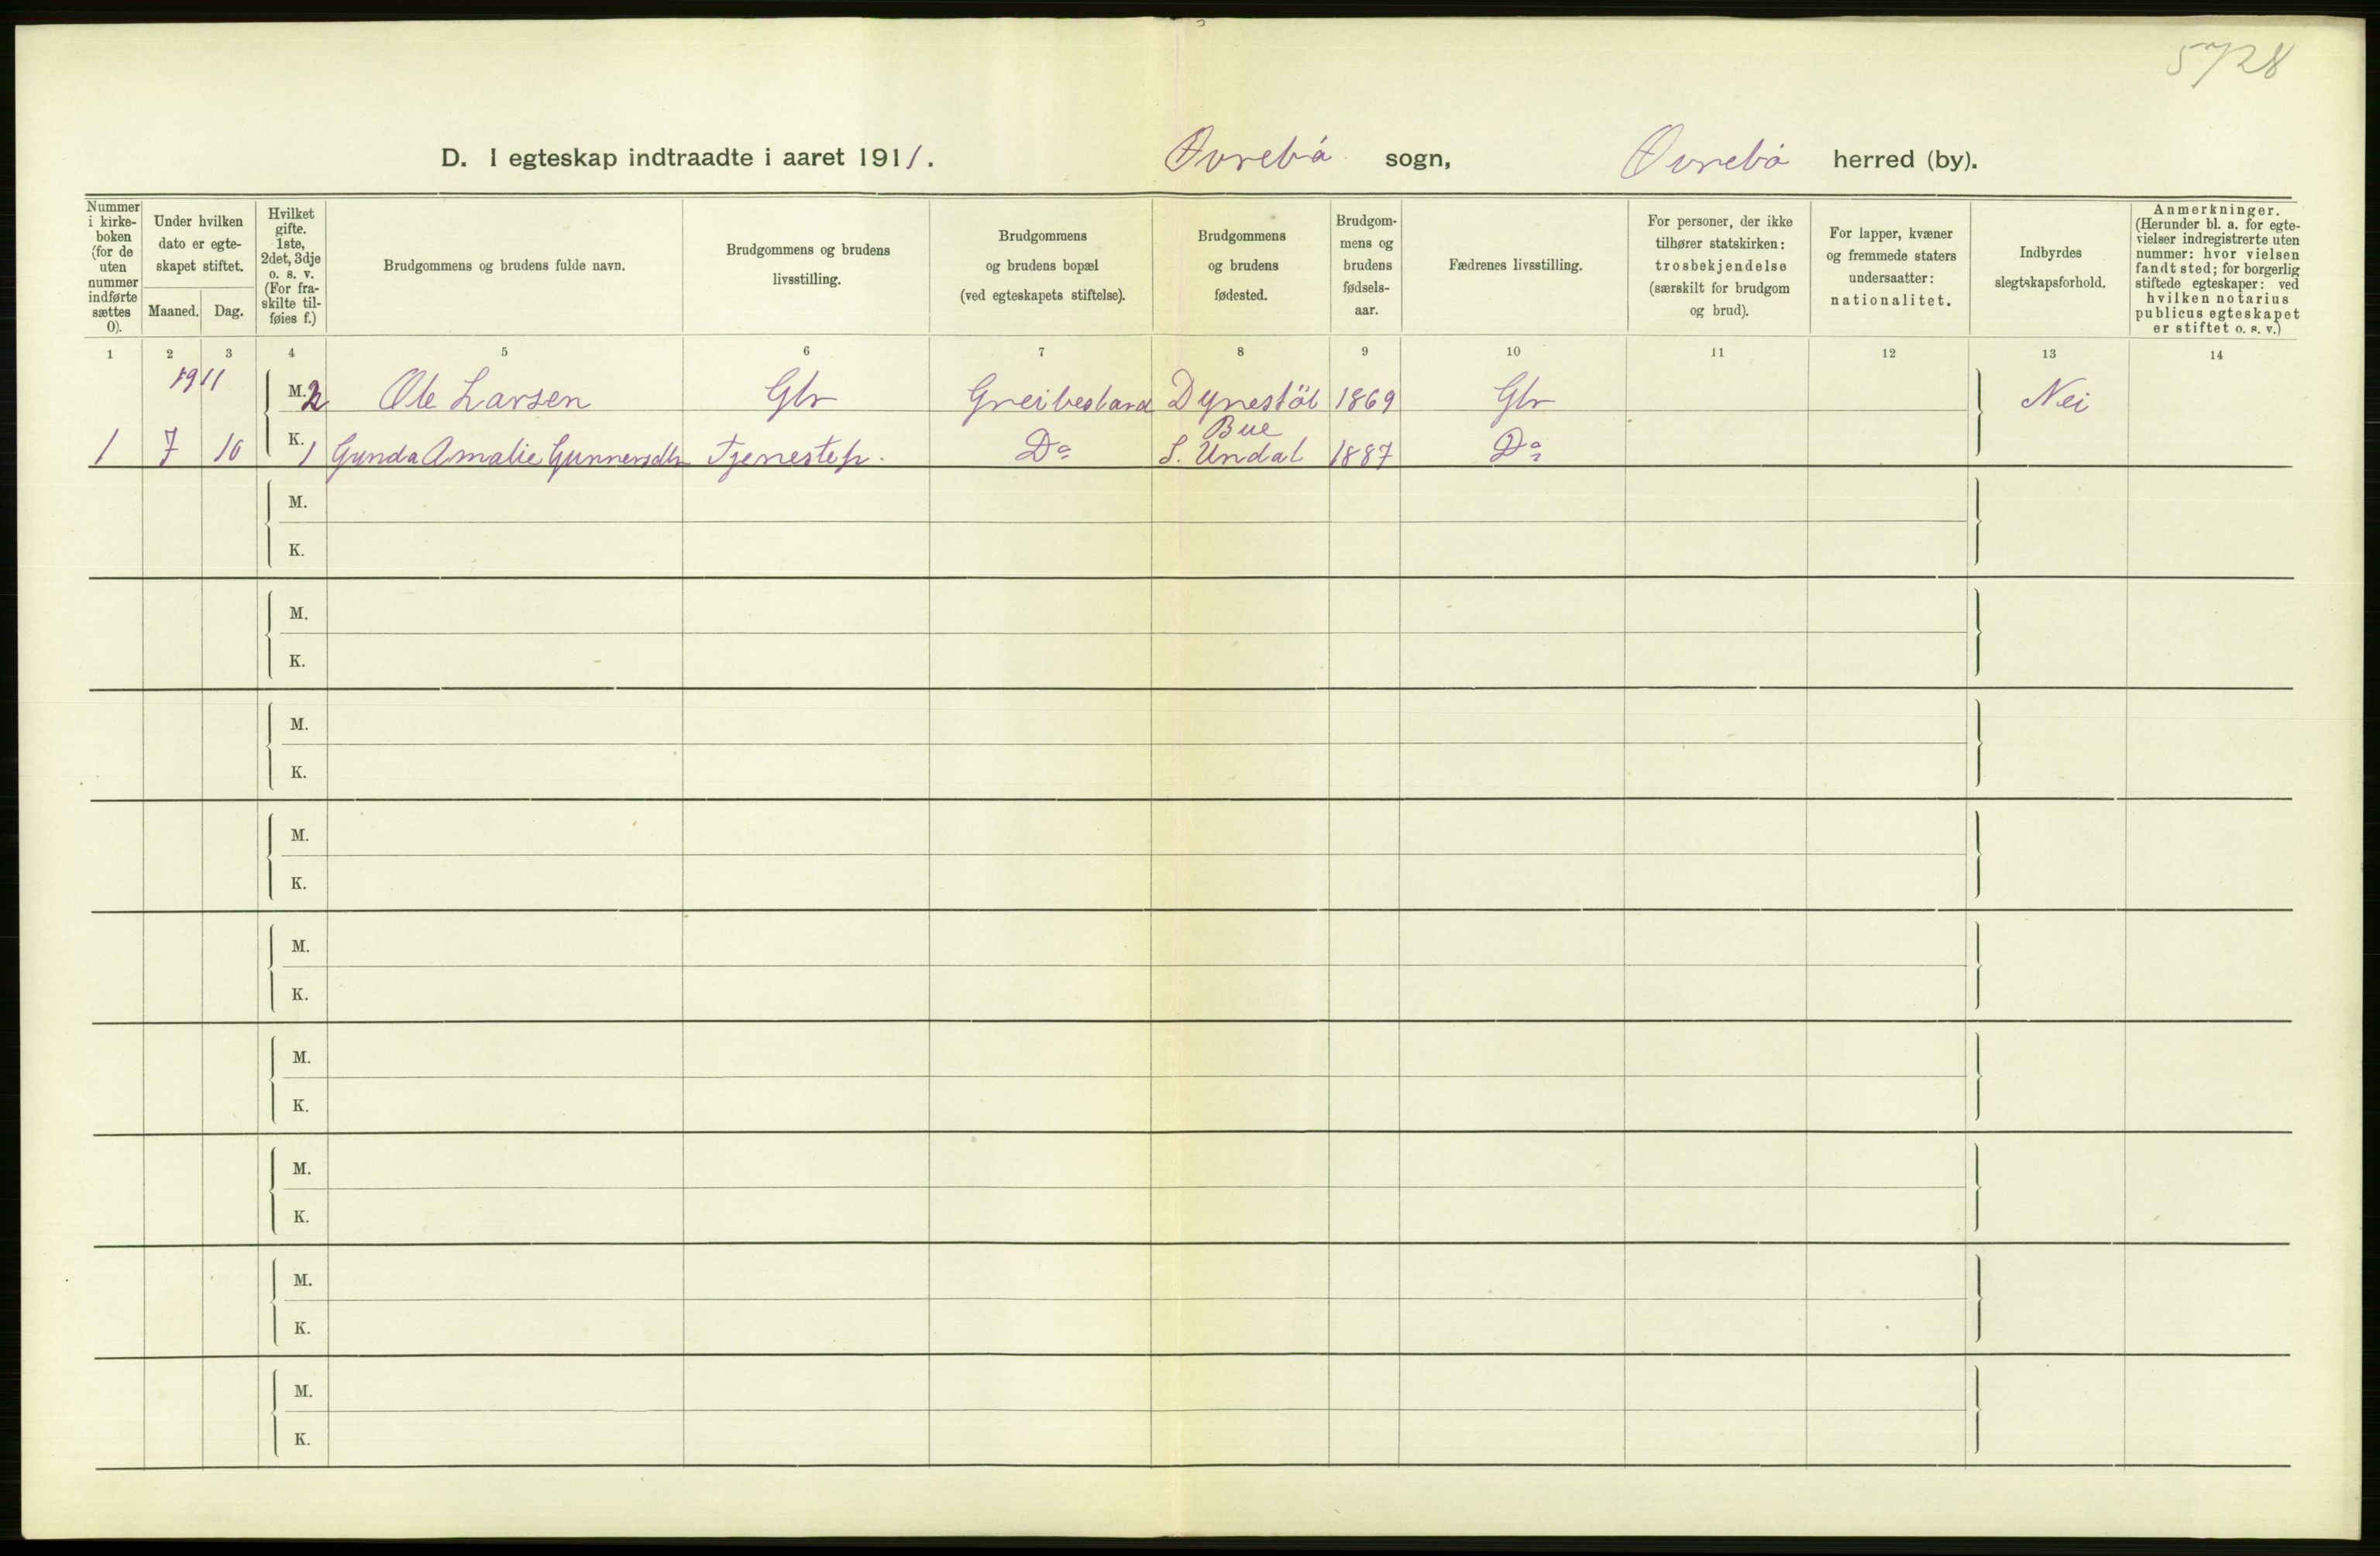 5728
D. I egteskap indtraadte i aaret 1911. Øvrebø sogn, Øvrebø herred (by).
Nummer i kirke-boken (for de uten nummer indførte sættes 0).
Under hvilken dato er egte-skapet stiftet.
Maaned. Dag.
Hvilket gifte. 1ste, 2det, 3dje o. s. v. (For fra-skilte til-føies f.)
Brudgommens og brudens fulde navn.
Brudgommens og brudens livsstilling.
Brudgommens og brudens bopæl (ved egteskapets stiftelse).
Brudgommens og brudens fødested.
Brudgom-mens og brudens fødsels-aar.
Fædrenes livsstilling.
For personer, der ikke tilhører statskirken: trosbekjendelse (særskilt for brudgom og brud).
For lapper, kvæner og fremmede staters undersaatter: nationalitet.
Indbyrdes slegtskapsforhold.
Anmerkninger. (Herunder bl. a. for egte-vielser indregistrerte uten nummer: hvor vielsen fandt sted; for borgerlig stiftede egteskaper: ved hvilken notarius publicus egteskapet er stiftet o. s. v.)
1 2 3 4 5 6 7 8 9 10 11 12 13 14
1911
M. 2 Ole Larsen Gbr Greibesland Dynestöl 1869 Gbr Nei
Bue
1 7 10 K. 1 Gunda Amalie Gunnersdtr Tjenestep. Do S. Undal 1887 Do
M.
K.
M.
K.
M.
K.
M.
K.
M.
K.
M.
K.
M.
K.
M.
K.
M.
K.